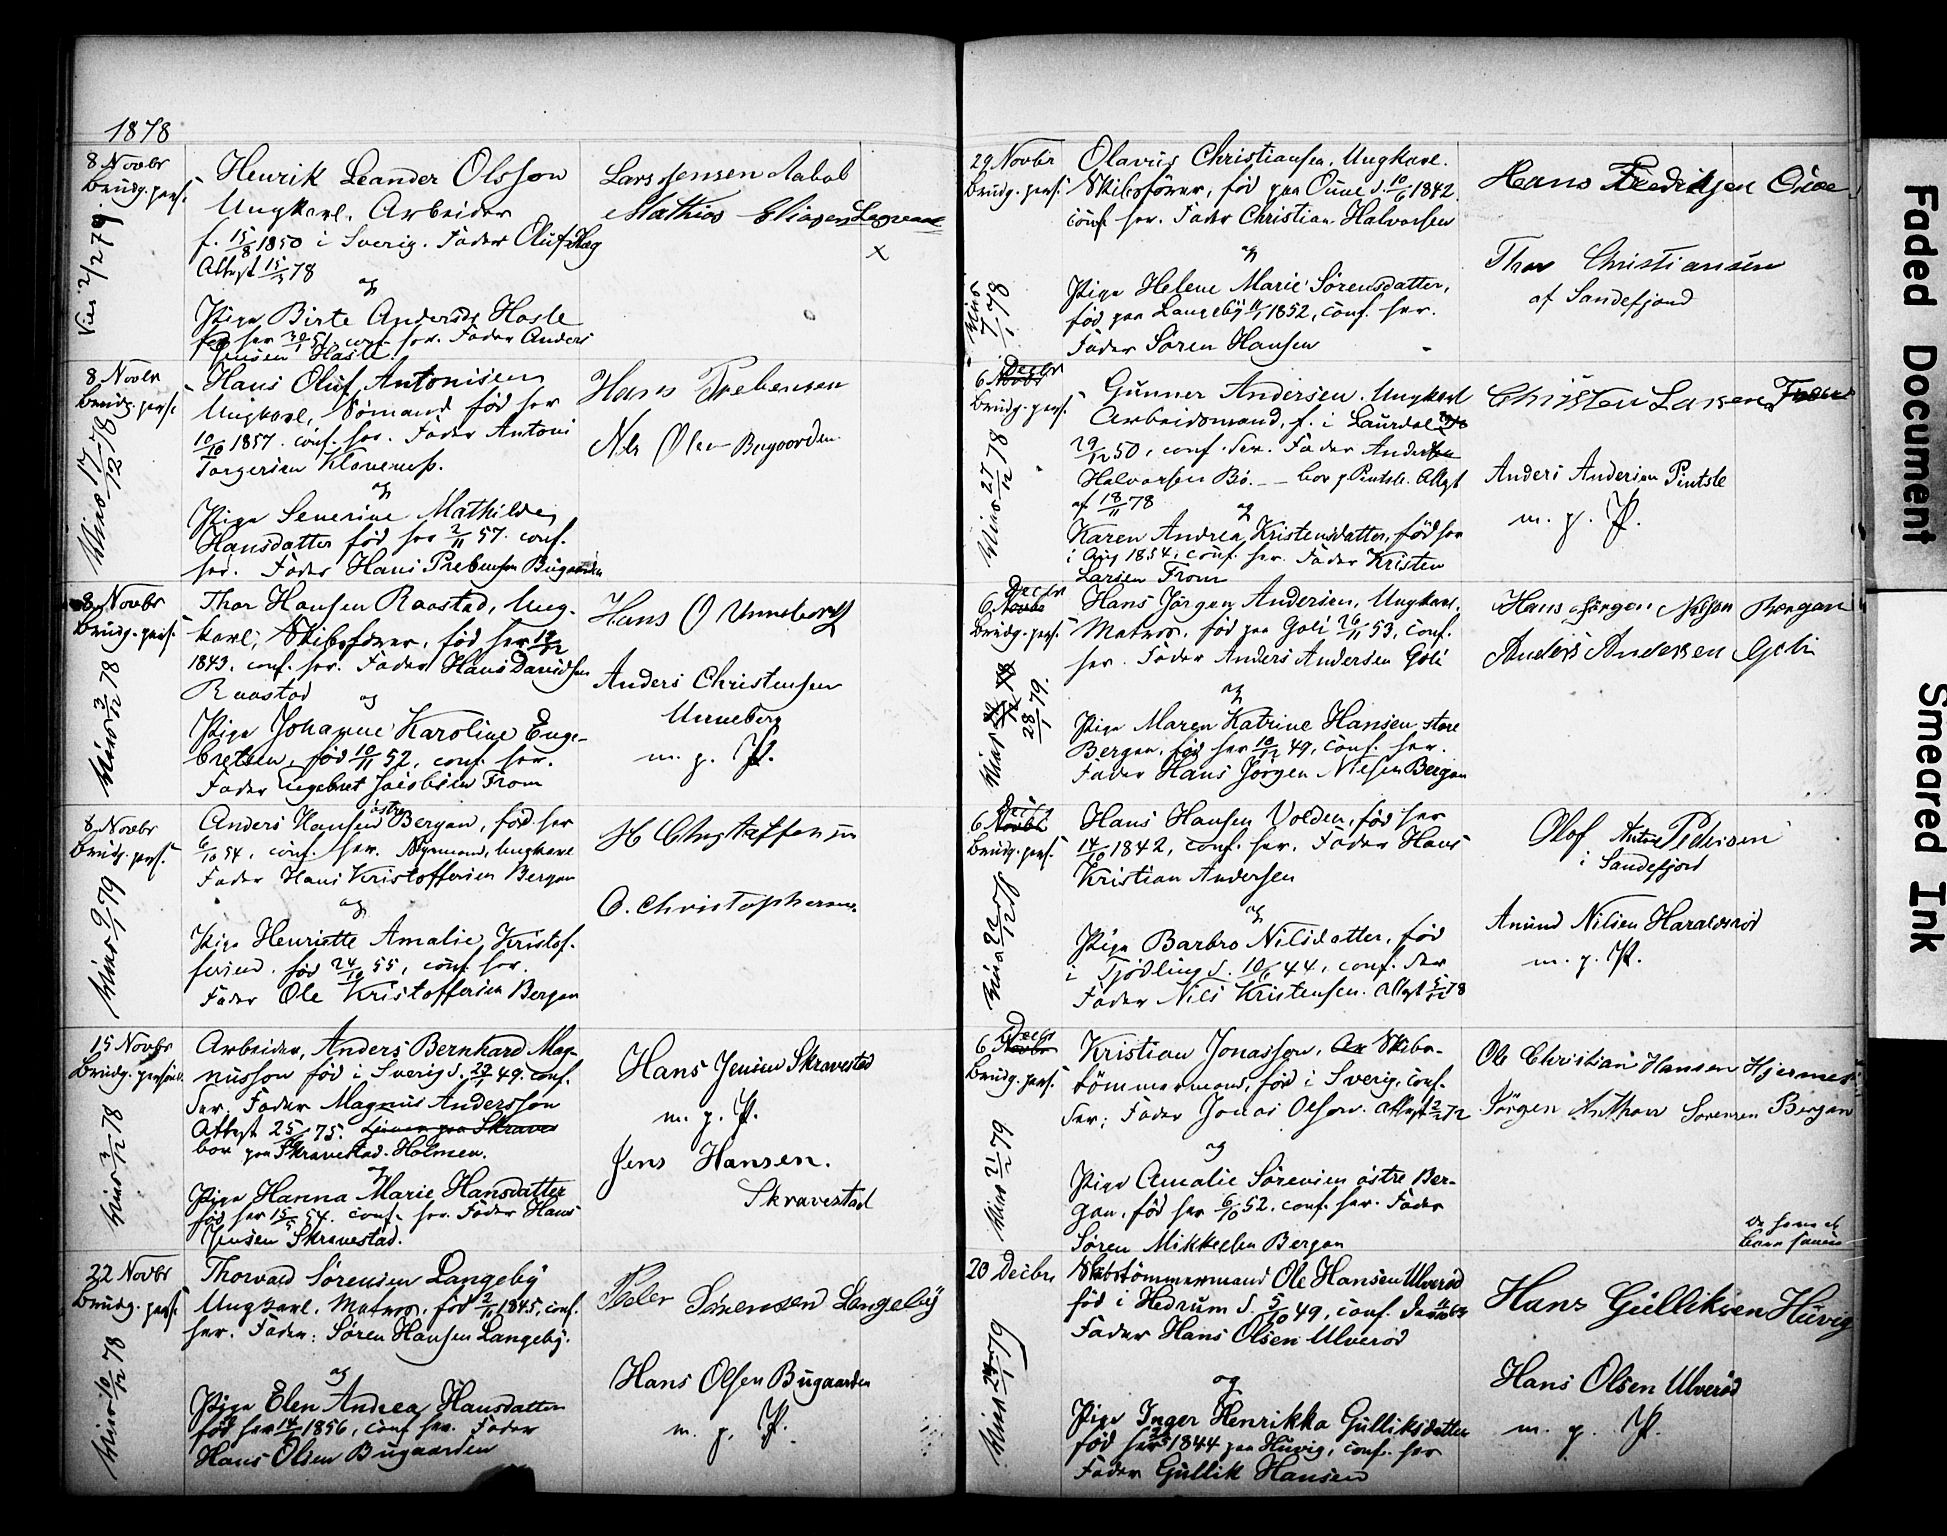 1878
8 Novbr
Brudg. pers.
Viet 2/2 79.
Henrik Leander Olsson
Ungkarl. Arbeider
f. 15/8 1850 i Sverig. Fader Oluf
Attest 15/ 78
og
Pige Birte Andersd. Hasle
fød her 51, conf. her. Fader Anders
Jensen Hasle
Lars Jensen
Mathias
x
8 Novbr
Brudg. pers.
Viet 17/12 78
Hans Oluf Antonisen
Ungkarl, Sømand fød her
10/10 1857. conf. her. Fader Antoni
Torgersen Klavenes.
og
Pige Severine Mathilde
Hansdatter fød her 2/11 57. conf.
her. Fader Hans Prebensen Bugaarden
Hans Prebensen
Nils Olsen Bugaarden.
8 Novbr
Brudg. pers.
Viet 3/12 78
Thor Hansen Raastad, Ung-
karl, Skibsfører, fød her
1843, conf. her. Fader Hans Davidsen
Raastad
og
Pige Johanne Karoline Enge-
bretsen, fød 10/11 52, conf. her.
Fader Engebret Jacobsen From
Hans O Unneberg
Anders Christensen
Unneberg
m. p. P.
8 Novbr
Brudg. pers.
Viet 9/1 79
Anders Hansen østre Bergan, fød her
6/10 54, conf. her. Ungkarl
Fader Hans Kristoffersen Bergan
og
Pige Henriette Amalie Kristof-
fersend. fød 24/10 55, conf. her.
Fader Ole Kristoffersen Bergan
O. Christophersen
15 Novbr
Brudg. personl.
Viet 3/12 78
Arbeider, Anders Bernhard Mag-
nusson fød i Sverig d. 49. conf.
der. Fader Magnus Andersson
Attest 25/ 75.
bor paa Skravestad-Holmen.
og
Pige Hanna Marie Hansdatter
fød her 15/5 54. conf. her. Fader Hans
Jensen Skravestad.
Hans Jensen Skravestad
m. p. P.
Jens Hansen.
Skravestad
22 Novbr
Brudg. pers.
Viet 10/12 78
Thorvald Sørensen Langeby
Ungkarl. Matros, fød 1845, conf.
her. Fader: Søren Hansen Langeby.
og
Pige Elen Andrea Hansdatter
fød her 14/ 1856, conf her. Fader
Hans Olsen Bugaarden
Peder Sørensen Langeby
Hans Olsen Bugaarden
m. p. P.
29 Novbr
Brudg. pers.
Viet 7/1 78
Olavus Christiansen, Ungkarl.
Skibsfører, fød paa Ouve d. 10/6 1842.
conf her. Fader Christian Halvorsen
og
Pige Helene Marie Sørensdatter,
fød paa Langeby 1852, conf. her.
Fader Søren Hansen
Hans Fredriksen Ouve
Thor Christiansen
af Sandefjord
6 Decbr
Brudg. pers.
Viet 27/12 78
Gunner Andersen. Ungkarl
Arbeidsmand, f. i Laurdal
29/12 50, conf. der. Fader Anders
Halvorsen Bø. — bor p Pintsle. Attest
af 18/11 78
og
Karen Andrea Kristensdatter, fød her
i Aug 1854, conf. her. Fader Kristen
Larsen From
Christen Larsen
Anders Andersen Pintsle
m. p. P.
6 Decbr
Brudg. pers.
Viet 28/1 79.
Hans Jørgen Andersen, Ungkarl.
Matros. fød paa Goli 26/11 53, conf.
her. Fader Anders Andersen Goli
og
Pige Maren Katrine Hansen store
Bergan, fød her 10/12 49, conf. her.
Fader Hans Jørgen Nilsen Bergan
Hans Jørgen Nilsen Bergan
Anders Andersen Goli
6 Decbr
Brudg. pers.
Viet 22/12 78
Hans Hansen Volden, fød her
14/10 1842, conf. her. Fader Hans
Kristian Andersen
og
Pige Barbro Nilsdatter, fød
i Tjødling d. 10/6 44, conf. der
Fader Nils Kristensen. Attest 78
Olof Anton Pedersen
i Sandefjord
Amund Nilsen Haraldsrød
m. p. P.
6 Decbr
Brudg. pers.
Viet 21/2 79
Kristian Jonassen, Skibs-
tømmermand, fød i Sverig, conf.
der; Fader Jonas Olsson. Attest 72
og
Pige Amalie Sørensen østre Ber-
gan, fød her 6/10 52. conf. her. Fader
Søren Mikkelsen Bergan
Ole Christian Hansen
Jørgen Anthon Sørensen Bergan
20 Decbr
Skibstømmermand Ole Hansen Ulverød
fød i Hedrum d. 5/10 49, conf. der
Fader Hans Olsen Ulverød
og
Pige Inger Henrikka Gulliksdatter
fød her 1844 paa Huvig, conf. her
Fader Gullik Hansen
Hans Gulliksen Huvig
Hans Olsen Ulverød
m. p. P.
Faded Document
Smeared Ink